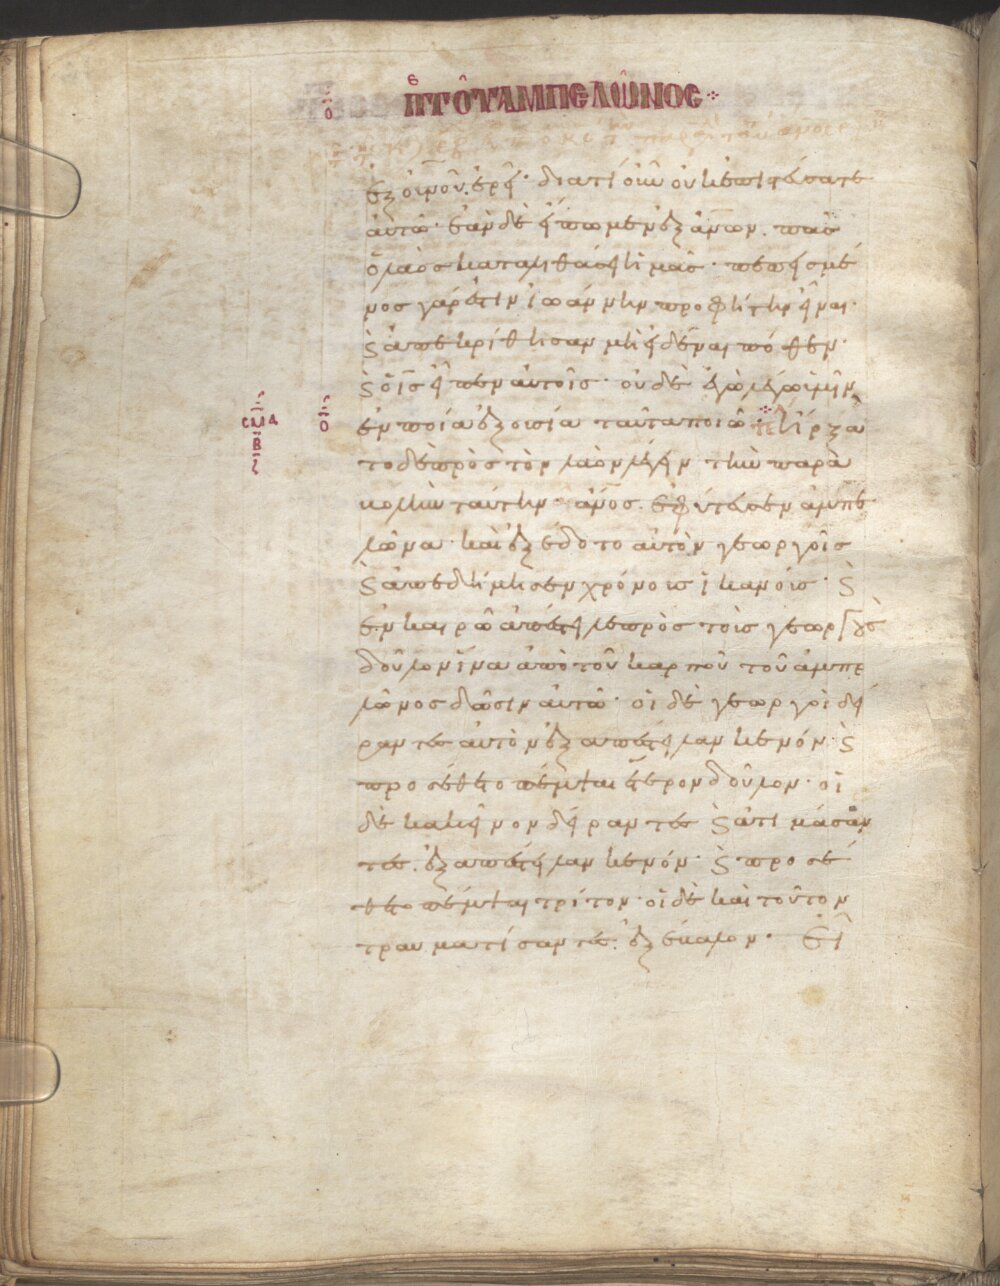 ο̅ πε τοῦ ἀμπελῶνος
ἐξ οὐ̅νου̅. ἐρεῖ· διατί οὖν οὐκ ἐπιστεύσατε
αὐτῶ· ἐὰν δὲ εἴπωμεν ἐξ ἀ̅νων. πᾶς
ὁ λαὸς καταλιθάσει ἡμᾶς· πεπεισμέ
νος γάρ ἐστιν ἰωάννην προφήτην εἶναι·
ϗ ἀπεκρίθησαν μὴ εἰδέναι πόθεν·
ϗ ὁ ι̅ς εἶπεν αὐτοῖς· οὐδὲ ἐγὼ λέγω ὑμῖν
ἐν ποία ἐξουσία ταῦτα ποιῶ ἤρξα
σ̅μ̅α ο̅
το δὲ πρὸς τὸν λαὸν λέγειν τὴν παρα
β̅
βολὴν ταύτην· ἄ̅νος. ἐφύτευσεν ἀμπε
λῶνα· καὶ ἐξέδοτο αὐτὸν γεωργοῖς
ϗ ἀπεδήμησεν χρόνους ἱκανούς· ϗ
ἐν καιρῶ ἀπέστειλε πρὸς τοὺς γεωργοὺς
δοῦλον ἵνα ἀπὸ τοῦ καρποῦ τοῦ ἀμπε
λῶνος δῶσιν αὐτῶ· οἱ δὲ γεωργοὶ δεί
ραντες αὐτὸν ἐξαπέστειλαν κενόν· ϗ
προσέθετο πέμψαι ἕτερον δοῦλον· οἱ
δὲ κακεῖνον δείραντες ϗ ἀτιμάσαν
τες. ἐξαπέστειλαν κενόν· ϗ προσέ
θετο πέμψαι τρίτον· οἱ δὲ καὶ τοῦτον
τραυματίσαντες. ἐξέβαλον· εἶ